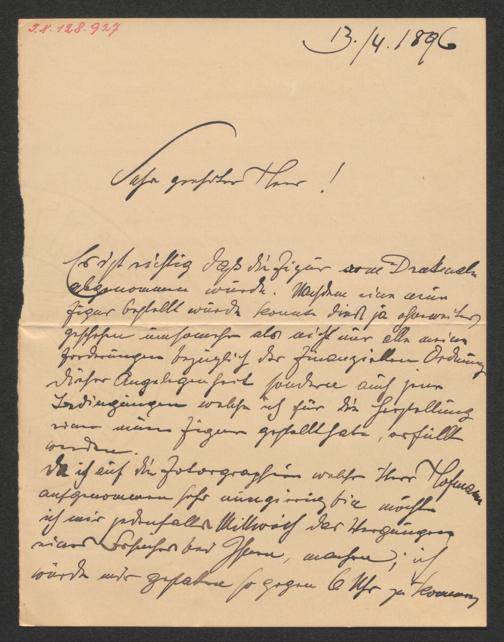 J.N. 128.927
13./4. 1896
Sehr geehrter Herr!
Es ist richtig daß die Figur vom Denkmale
abgenommen wurde. Nachdem eine neue
Figur bestellt wurde konnte dieß ja ohneweiters
geschehen umsomehr als nicht nur alle meine
Forderungen bezüglich der finanziellen Ordnung
dieser Angelegenheit sondern auch jene
Bedingungen welche ich für die Herstellung
einer neuen Figur gestellt habe, erfüllt
werden.
Da ich auf die Fotographien welche Herr Hofmann
aufgenommen sehr neugierig bin möchte
ich mir jedenfalls Mittwoch das Vergnügen
eines Besuches bei Ihnen, machen; ich
würde mir gestatten so gegen 6 Uhr zu kommen